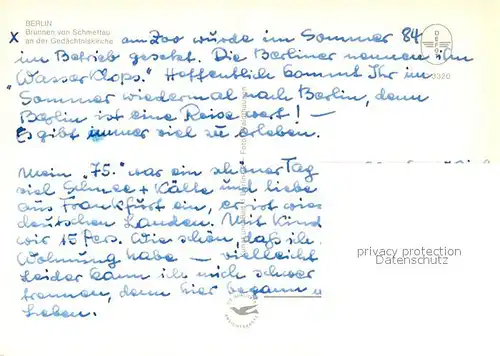 BERLIN
Brunnen von Schmettau
an der Gedächtniskirche
x am Zoo wurde im Sommer 84
im Betrieb gesetzt. Die Berliner nennen ihn
"Wasser Klops." Hoffentlich kommt Ihr im
Sommer wiedermal nach Berlin, denn
Berlin ist eine Reise wert! —
Es gibt immer viel zu erleben.
Mein "75." war ein schöner Tag
viel Schnee + Kälte und liebe
aus Frankfurt ein, er ist
deutschen Landen. Mit Kind
wir 15 Pers. Wie schön, daß ich
Wohnung habe — vielleicht
Leider kann ich mich schwer
trennen, denn hier begann
Leben.
3320
privacy protection
Datenschutz